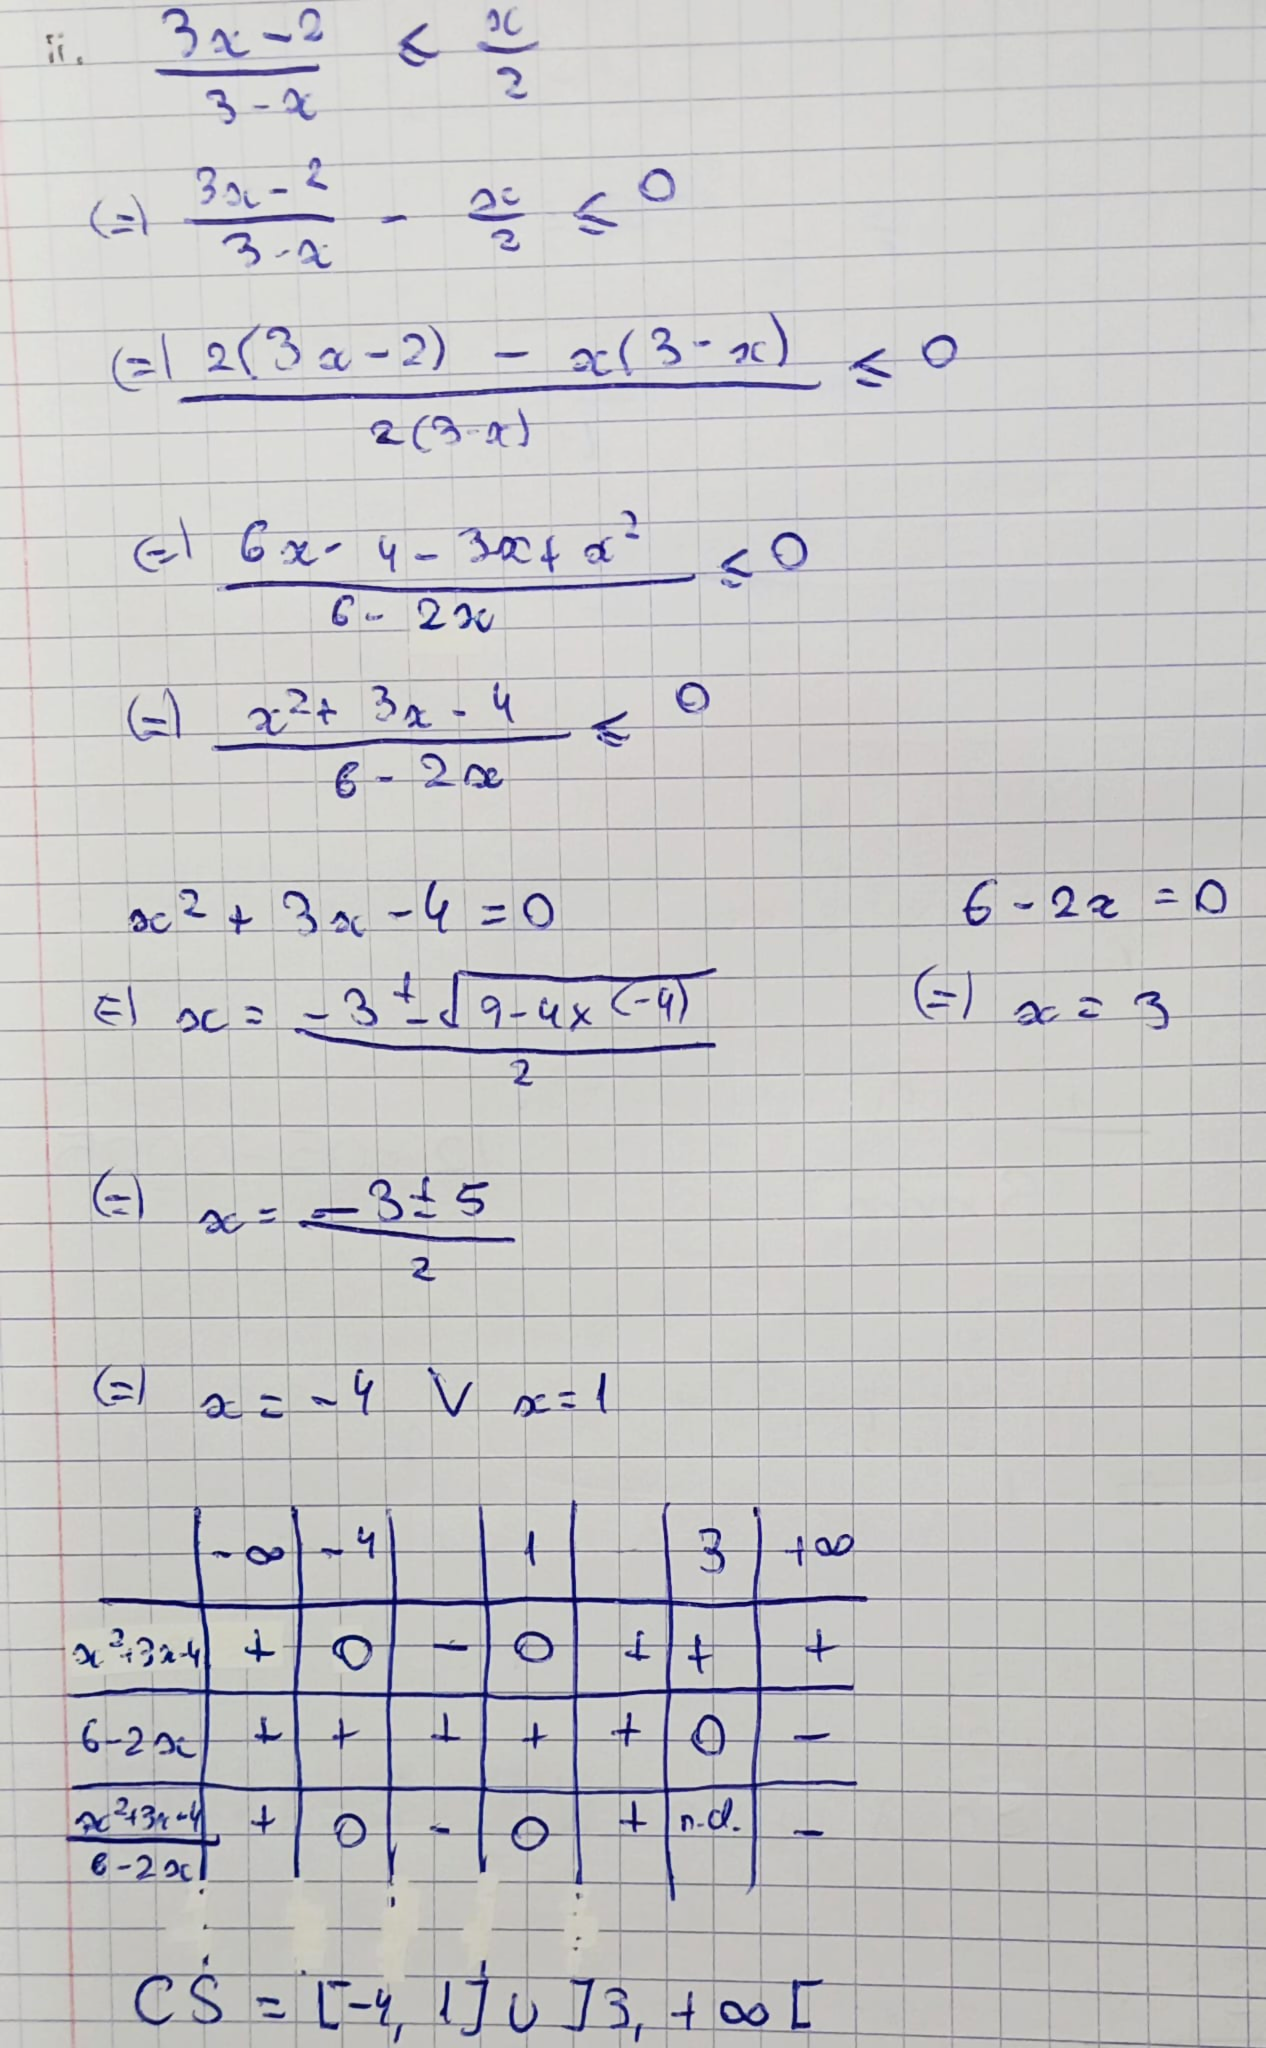 ii. (3x-2)/(3-x) ≤ x/2
(=) (3x-2)/(3-x) - x/2 ≤ 0
(=) (2(3x-2) - x(3-x))/(2(3-x)) ≤ 0
(=) (6x-4-3x+x²)/(6-2x) ≤ 0
(=) (x²+3x-4)/(6-2x) ≤ 0
x²+3x-4=0    6-2x=0
(=) x = (-3±√(9-4×(-4)))/2    (=) x=3
(=) x = (-3±5)/2
(=) x=-4 ∨ x=1
| | -∞ | -4 | | 1 | | 3 | +∞ |
| x²+3x-4 | + | 0 | - | 0 | + | + | + |
| 6-2x | + | + | + | + | + | 0 | - |
| (x²+3x-4)/(6-2x) | + | 0 | - | 0 | + | n.d. | - |
CS = [-4, 1] ∪ ]3, +∞[